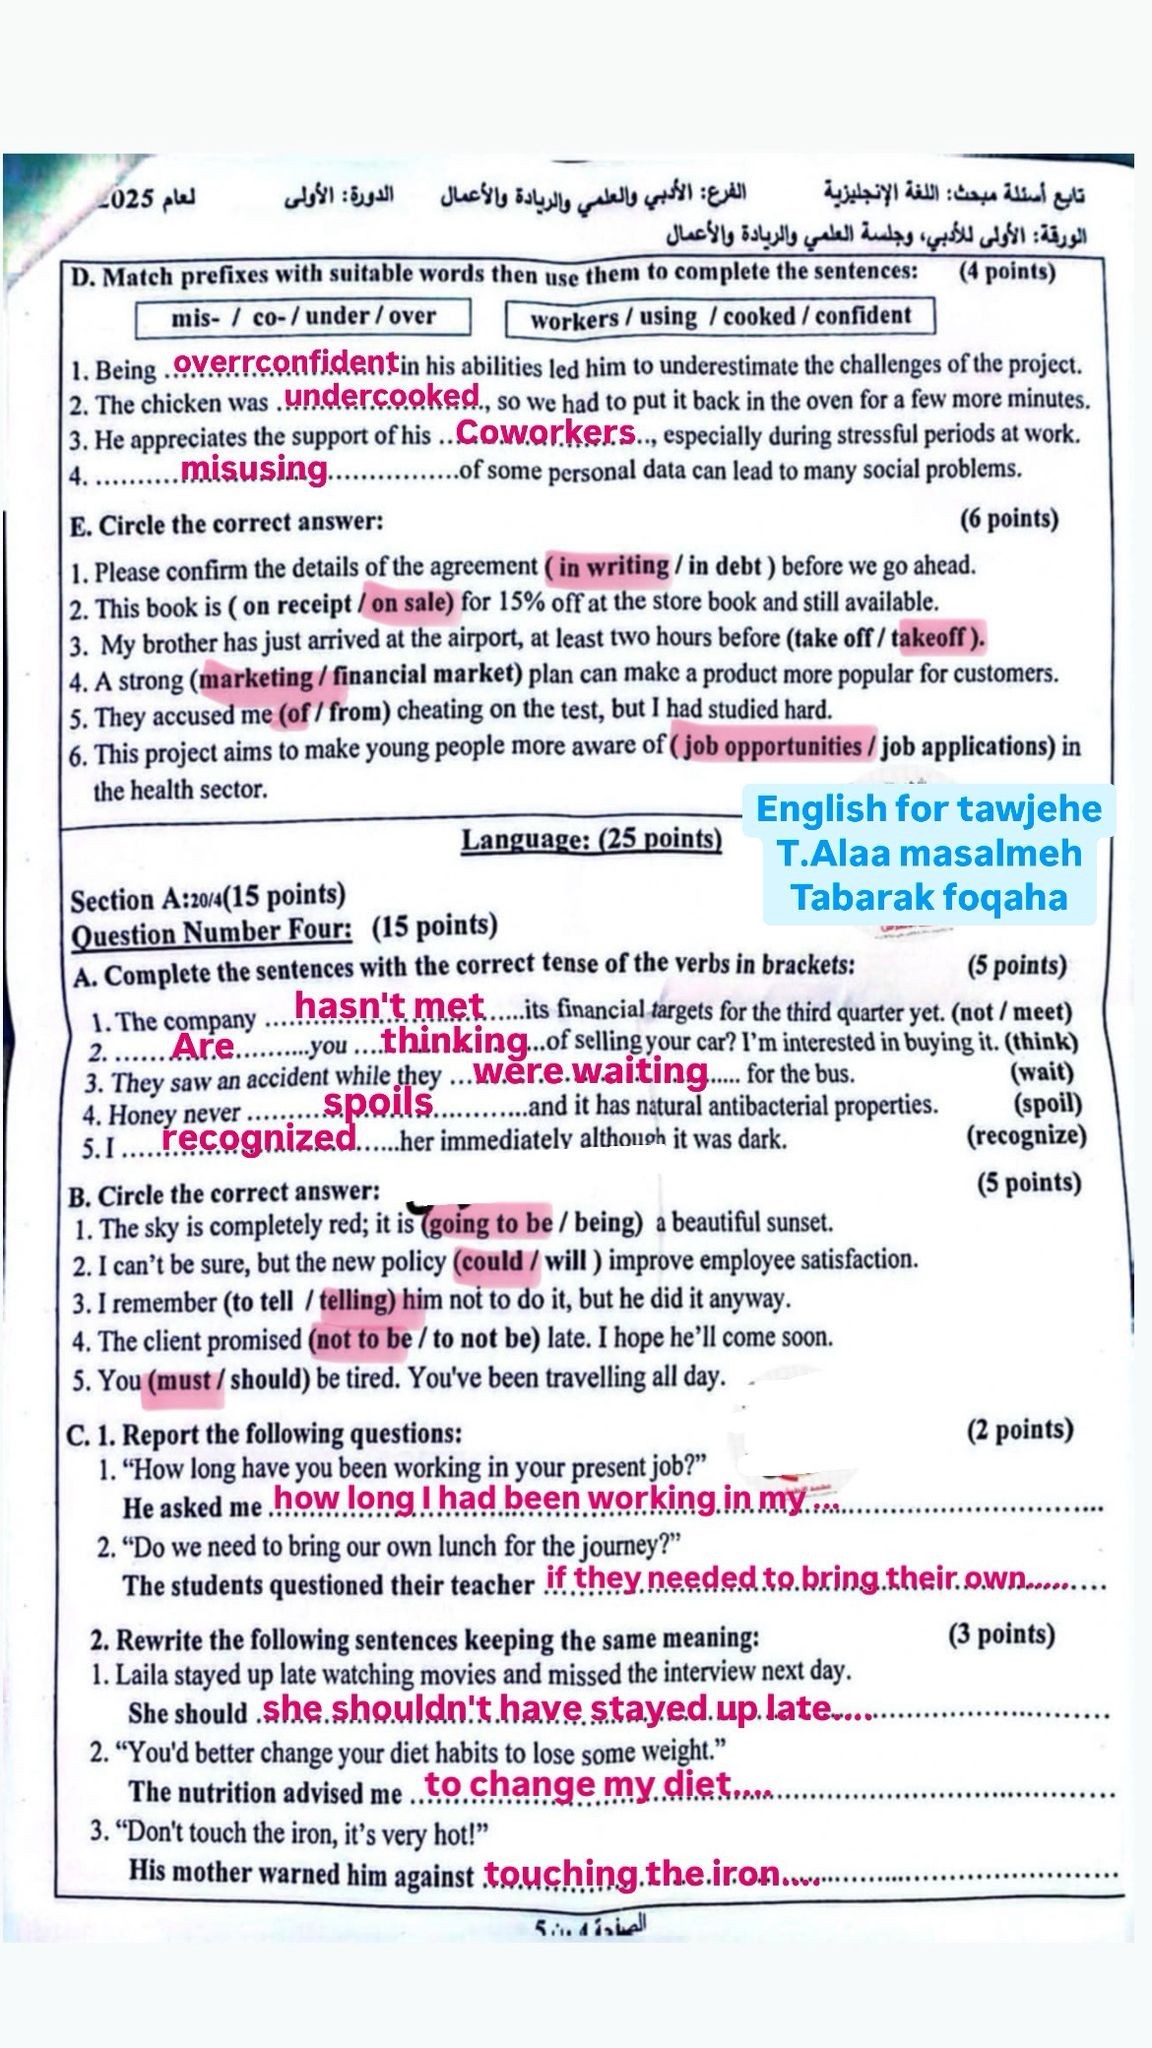 تابع أسئلة مبحث: اللغة الإنجليزية الفرع: الأدبي والعلمي والريادة والأعمال الدورة: الأولى لعام 2025
الورقة: الأولى للأدبي، وجلسة العلمي والريادة والأعمال
D. Match prefixes with suitable words then use them to complete the sentences: (4 points)
mis- / co- / under / over workers / using / cooked / confident
1. Being .overrconfident in his abilities led him to underestimate the challenges of the project.
2. The chicken was .undercooked., so we had to put it back in the oven for a few more minutes.
3. He appreciates the support of his ..Coworkers.., especially during stressful periods at work.
4. ..........misusing................of some personal data can lead to many social problems.
E. Circle the correct answer: (6 points)
1. Please confirm the details of the agreement ( in writing / in debt ) before we go ahead.
2. This book is ( on receipt / on sale) for 15% off at the store book and still available.
3. My brother has just arrived at the airport, at least two hours before (take off / takeoff ).
4. A strong (marketing / financial market) plan can make a product more popular for customers.
5. They accused me (of / from) cheating on the test, but I had studied hard.
6. This project aims to make young people more aware of ( job opportunities / job applications) in
the health sector.
English for tawjehe
T.Alaa masalmeh
Tabarak foqaha
Language: (25 points)
Section A:20/4(15 points)
Question Number Four: (15 points)
A. Complete the sentences with the correct tense of the verbs in brackets: (5 points)
1. The company ...hasn't met......its financial targets for the third quarter yet. (not / meet)
2. .......Are..........you ....thinking...of selling your car? I'm interested in buying it. (think)
3. They saw an accident while they ...were waiting..... for the bus. (wait)
4. Honey never .........spoils............and it has natural antibacterial properties. (spoil)
5. I ....recognized......her immediately although it was dark. (recognize)
B. Circle the correct answer: (5 points)
1. The sky is completely red; it is (going to be / being) a beautiful sunset.
2. I can't be sure, but the new policy (could / will ) improve employee satisfaction.
3. I remember (to tell / telling) him not to do it, but he did it anyway.
4. The client promised (not to be / to not be) late. I hope he'll come soon.
5. You (must / should) be tired. You've been travelling all day.
C. 1. Report the following questions: (2 points)
1. “How long have you been working in your present job?”
He asked me how long I had been working in my...
2. “Do we need to bring our own lunch for the journey?”
The students questioned their teacher if they needed to bring their own.....
2. Rewrite the following sentences keeping the same meaning: (3 points)
1. Laila stayed up late watching movies and missed the interview next day.
She should .she shouldn't have stayed up late....
2. “You'd better change your diet habits to lose some weight.”
The nutrition advised me ..to change my diet....
3. “Don't touch the iron, it's very hot!”
His mother warned him against touching the iron....
الصفحة 4 من 5